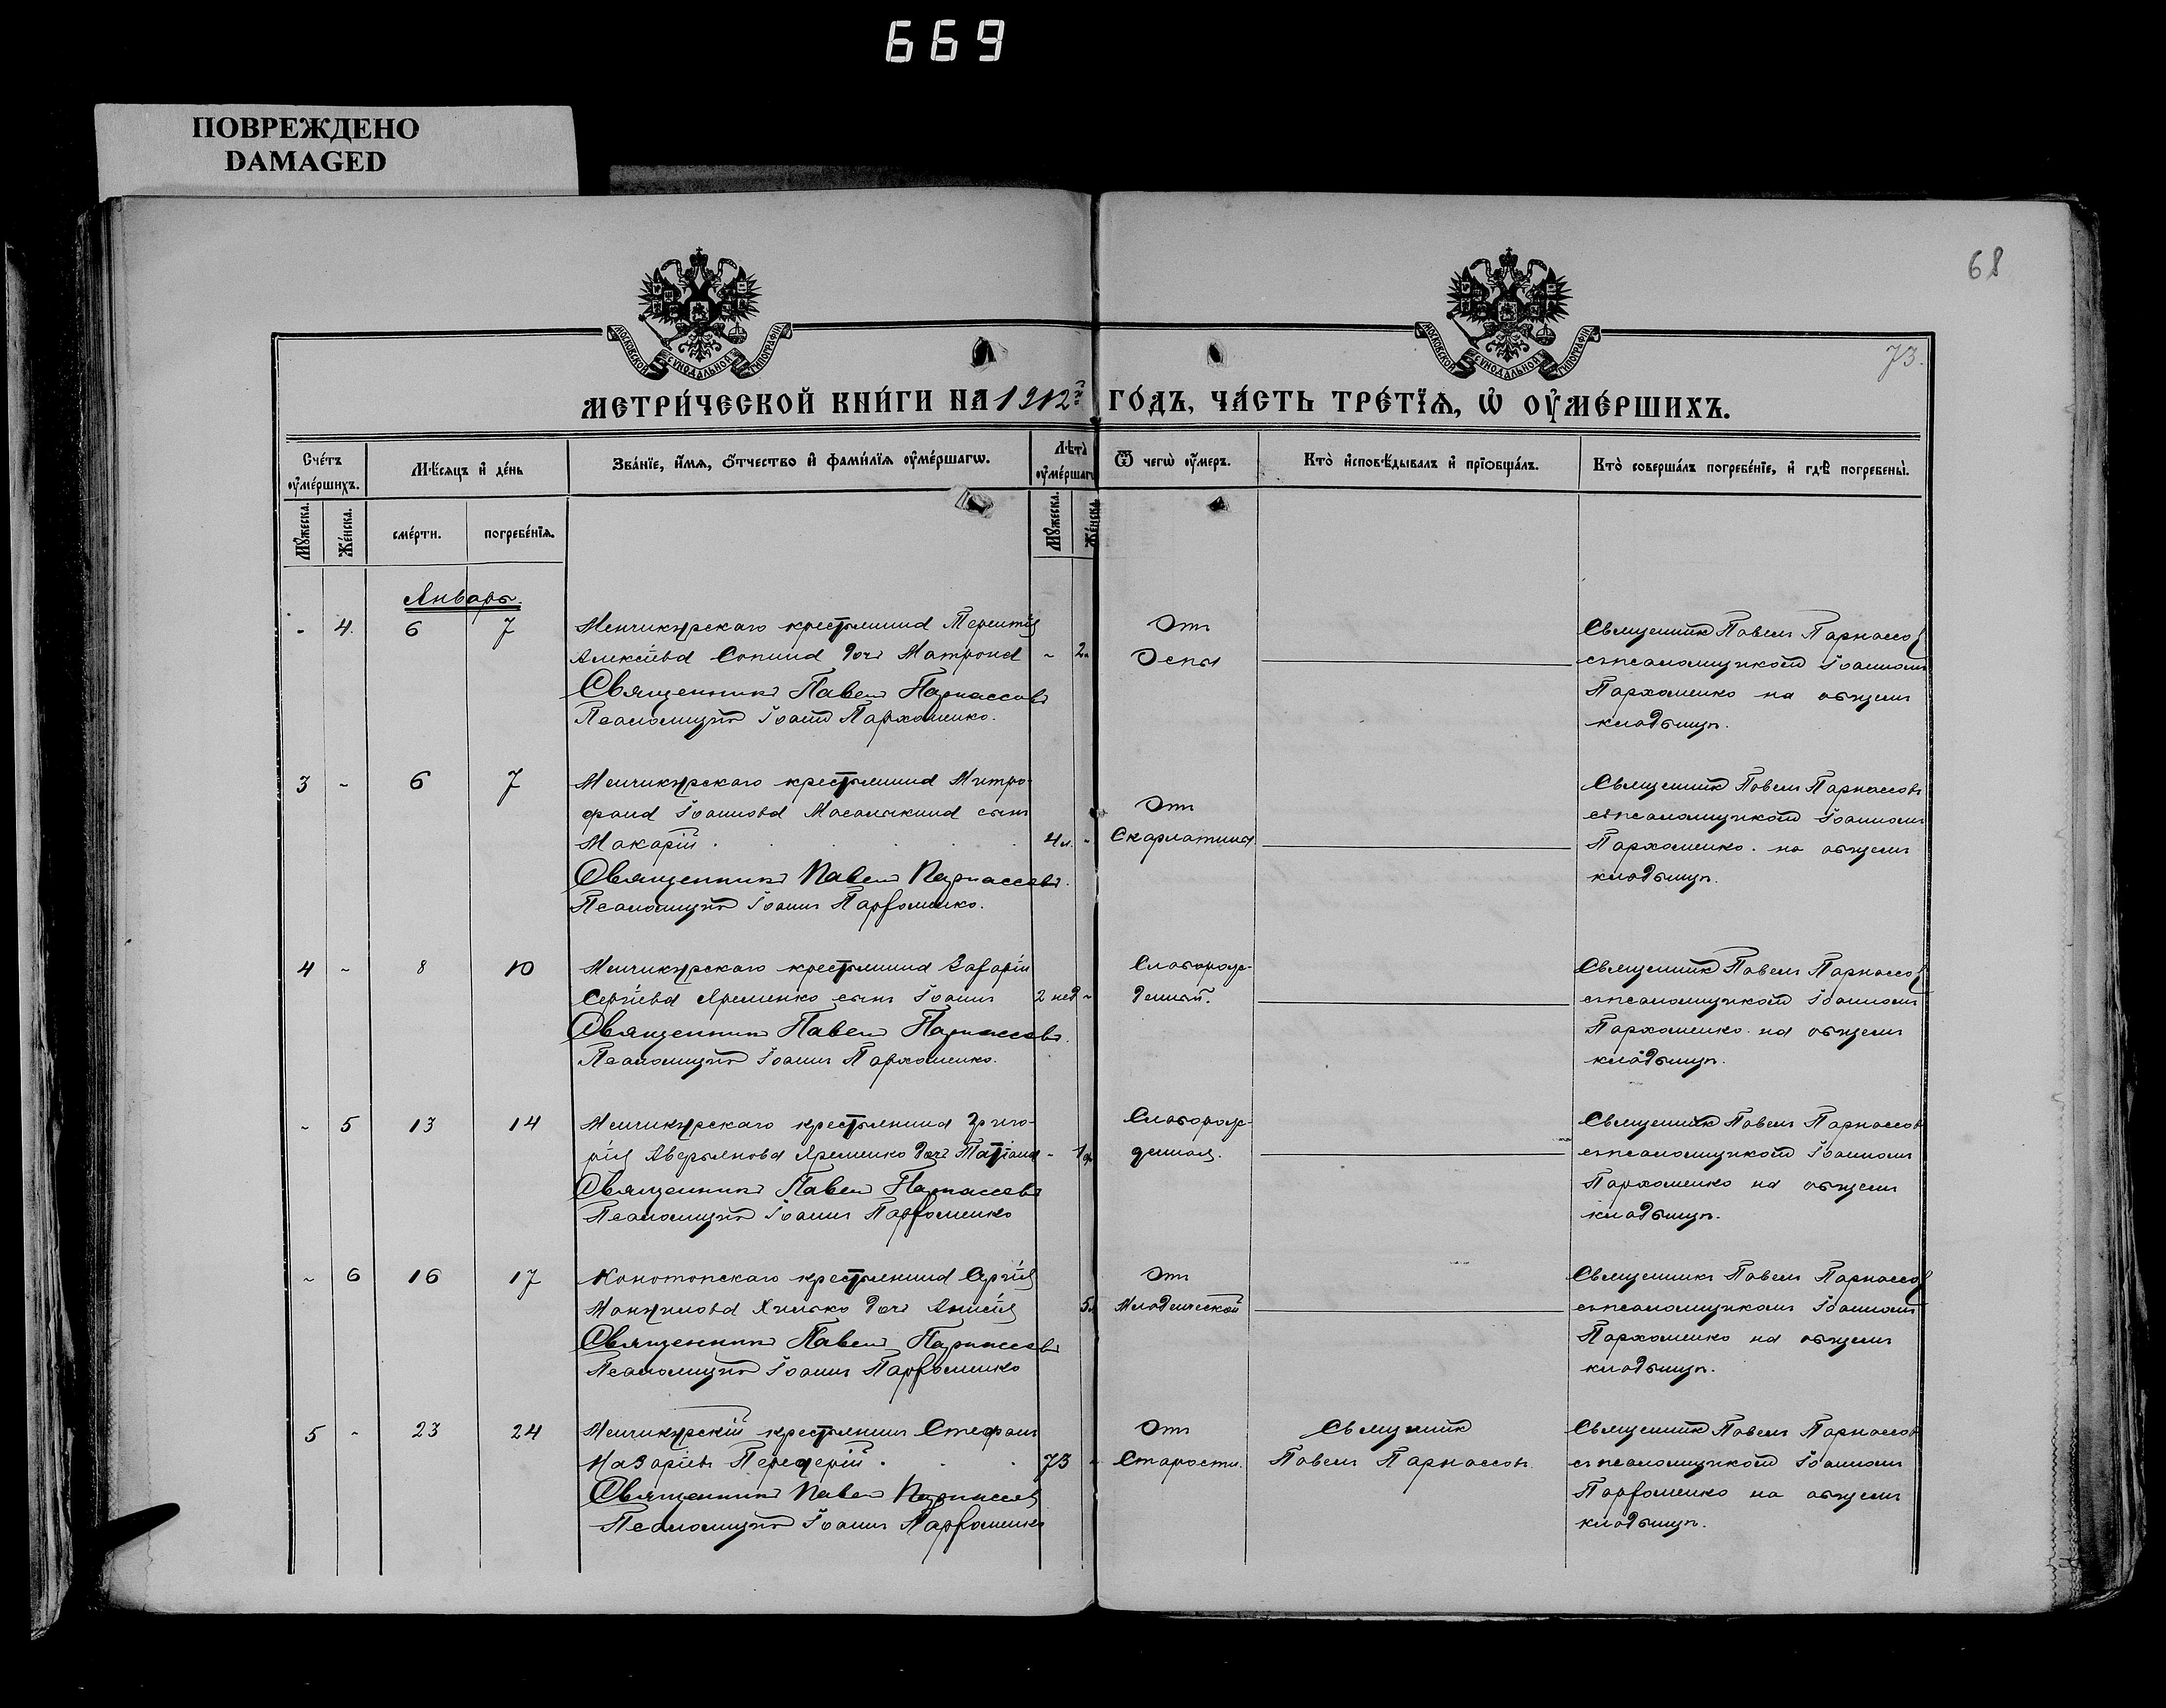 669
ПОВРЕЖДЕНО
DAMAGED
68
73.
МОСКОВСКОЙ СѴНОДАЛЬНОЙ ТИПОГРАФІИ
МОСКОВСКОЙ СѴНОДАЛЬНОЙ ТИПОГРАФІИ
МЕТРИ́ЧЕСКОЙ КНИ́ГИ НА 1912й ГО́ДЪ, ЧА́СТЬ ТРЕ́ТІѦ, Ѡ҆ ОУ҆МЕ́РШИХЪ.
Сче́тъ оу҆ме́ршихъ.
Мѣ́сяцъ и҆ де́нь
Зва́нїе, и҆́мѧ, ѻ҆́тчество и҆ фами́лїѧ оу҆ме́ршагѡ.
Лѣ́та оу҆ме́ршагѡ
Ѿ чегѡ̀ оу҆́меръ.
Кто̀ и҆сповѣ́дывалъ и҆ прїѡбща́лъ.
Кто̀ соверша́лъ погребе́нїе, и҆ гдѣ̀ погребены̀.
Мꙋ́жеска.
Же́нска.
сме́рти.
погребе́нїѧ.
Мꙋ́жеска.
Же́нска.
Январь.
- 4. 6 7 Менчикурскаго крестьянина Терентія
Алексѣева Сопина дочь Матрона - 2
Священникъ Павелъ Парнассовъ
Псаломщикъ Іоаннъ Пархоменко.
Отъ
Оспы
Священникъ Павелъ Парнассовъ
съ псаломщикомъ Іоанномъ
Пархоменко на общемъ
кладбищѣ.
3 - 6 7 Менчикурскаго крестьянина Митро-
фана Іоаннова Масалыкина сынъ
Макарій 4 л. -
Священникъ Павелъ Парнассовъ.
Псаломщикъ Іоаннъ Пархоменко.
Отъ
Скарлатины
Священникъ Павелъ Парнассовъ
съ псаломщикомъ Іоанномъ
Пархоменко на общемъ
кладбищѣ.
4 - 8 10 Менчикурскаго крестьянина Захарія
Сергіева Яременко сынъ Іоаннъ 2 нед -
Священникъ Павелъ Парнассовъ.
Псаломщикъ Іоаннъ Пархоменко.
Слаборож-
денный.
Священникъ Павелъ Парнассовъ
съ псаломщикомъ Іоанномъ
Пархоменко на общемъ
кладбищѣ.
- 5 13 14 Менчикурскаго крестьянина Григо-
рія Аверьянова Яременко дочь Татіана - 1
Священникъ Павелъ Парнассовъ
Псаломщикъ Іоаннъ Пархоменко
Слаборож-
денная.
Священникъ Павелъ Парнассовъ
съ псаломщикомъ Іоанномъ
Пархоменко на общемъ
кладбищѣ.
- 6 16 17 Конотопскаго крестьянина Сергія
Мануилова Хилько дочь Анисія 5
Священникъ Павелъ Парнассовъ
Псаломщикъ Іоаннъ Пархоменко
Отъ
Младенческой
Священникъ Павелъ Парнассовъ
съ псаломщикомъ Іоанномъ
Пархоменко на общемъ
кладбищѣ.
5 - 23 24 Менчикурскій крестьянинъ Стефанъ
Назаріевъ Передерій 73 -
Священникъ Павелъ Парнассовъ
Псаломщикъ Іоаннъ Пархоменко
Отъ
Старости.
Священникъ
Павелъ Парнассовъ.
Священникъ Павелъ Парнассовъ
съ псаломщикомъ Іоанномъ
Пархоменко на общемъ
кладбищѣ.